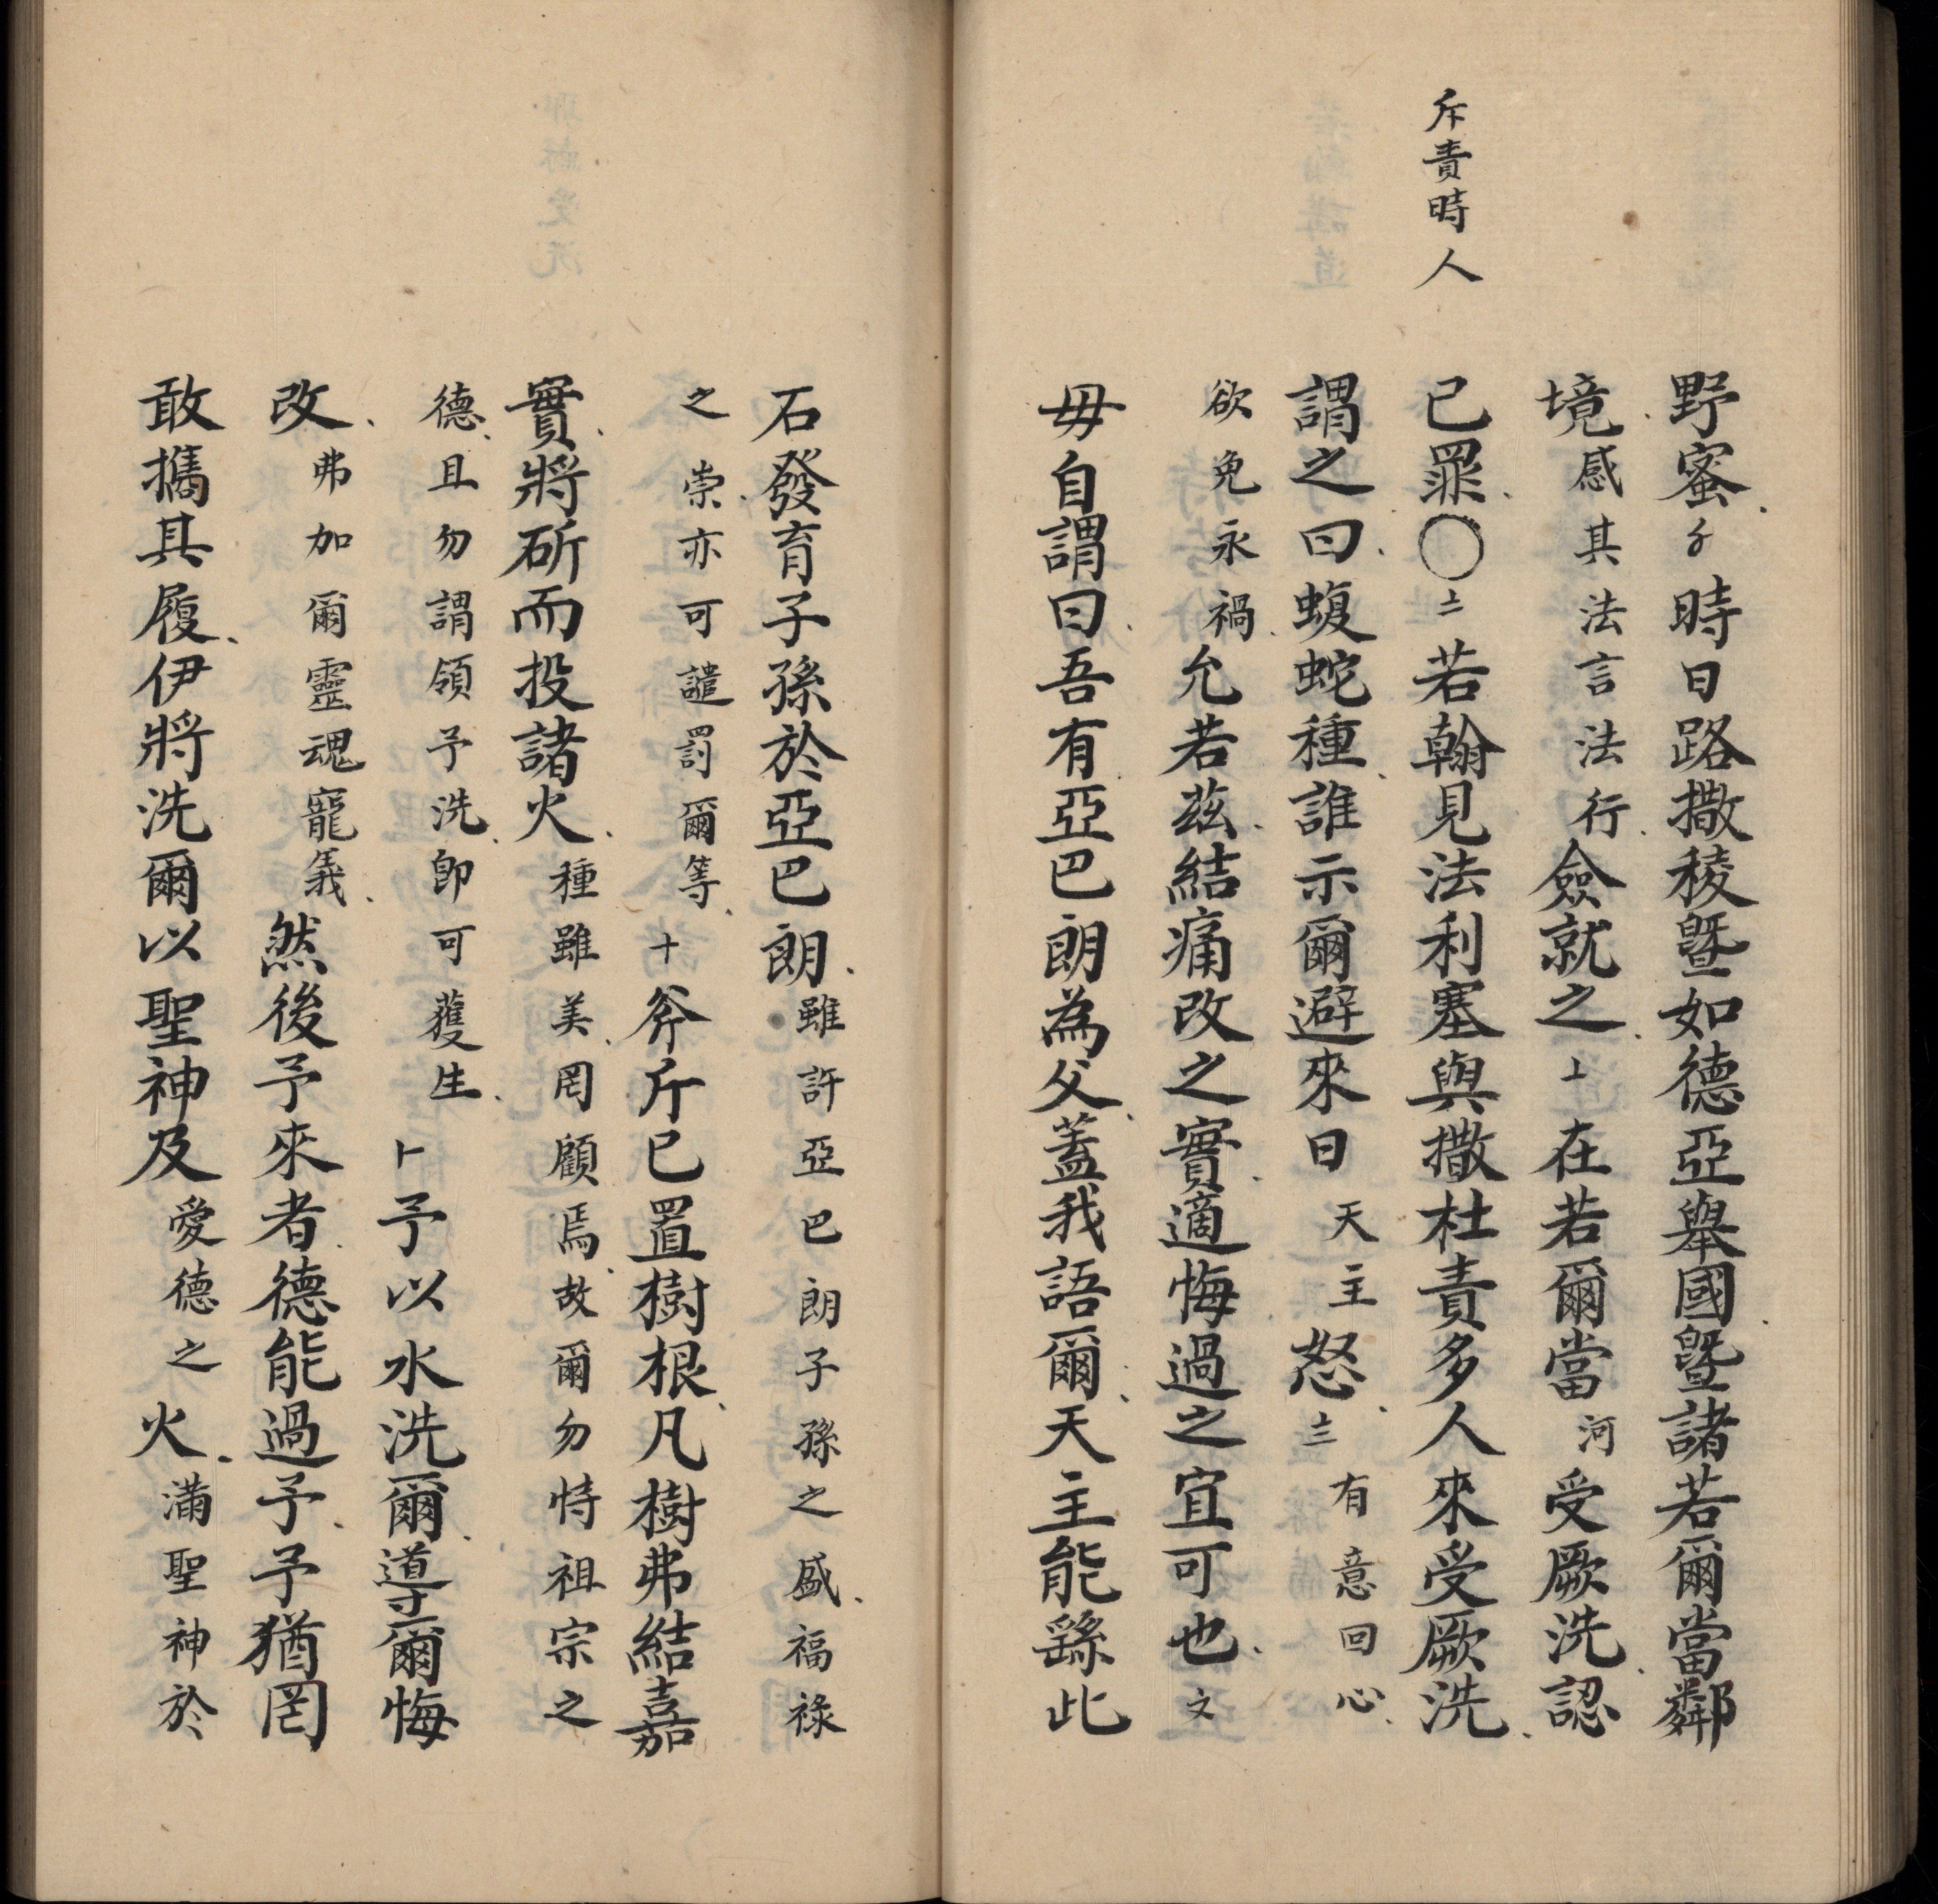 斥責時人
野蜜時日路撒稜曁如德亞舉國曁諸若爾當鄰
境感其法言法行僉就之在若爾當河受厥洗認
已罪〇二若翰見法利塞與撒杜責多人來受厥洗
謂之曰蝮蛇種誰示爾避來日天主怒三有意回心
欲免永禍允若茲結痛改之實適悔過之宜可也文
毋自謂曰吾有亞巴朗為父蓋我語爾天主能繇此
石發育子孫於亞巴朗雖許亞巴朗子孫之盛福祿
之崇亦可譴罰爾等十斧斤已置樹根凡樹弗結嘉
實將斫而投諸火種雖美罔顧焉故爾勿恃祖宗之
德且勿謂領予洗卽可獲生予以水洗爾導爾悔
改弗加爾靈魂寵義然後予來者德能過予予猶罔
敢攜其履伊將洗爾以聖神及愛德之火滿聖神於